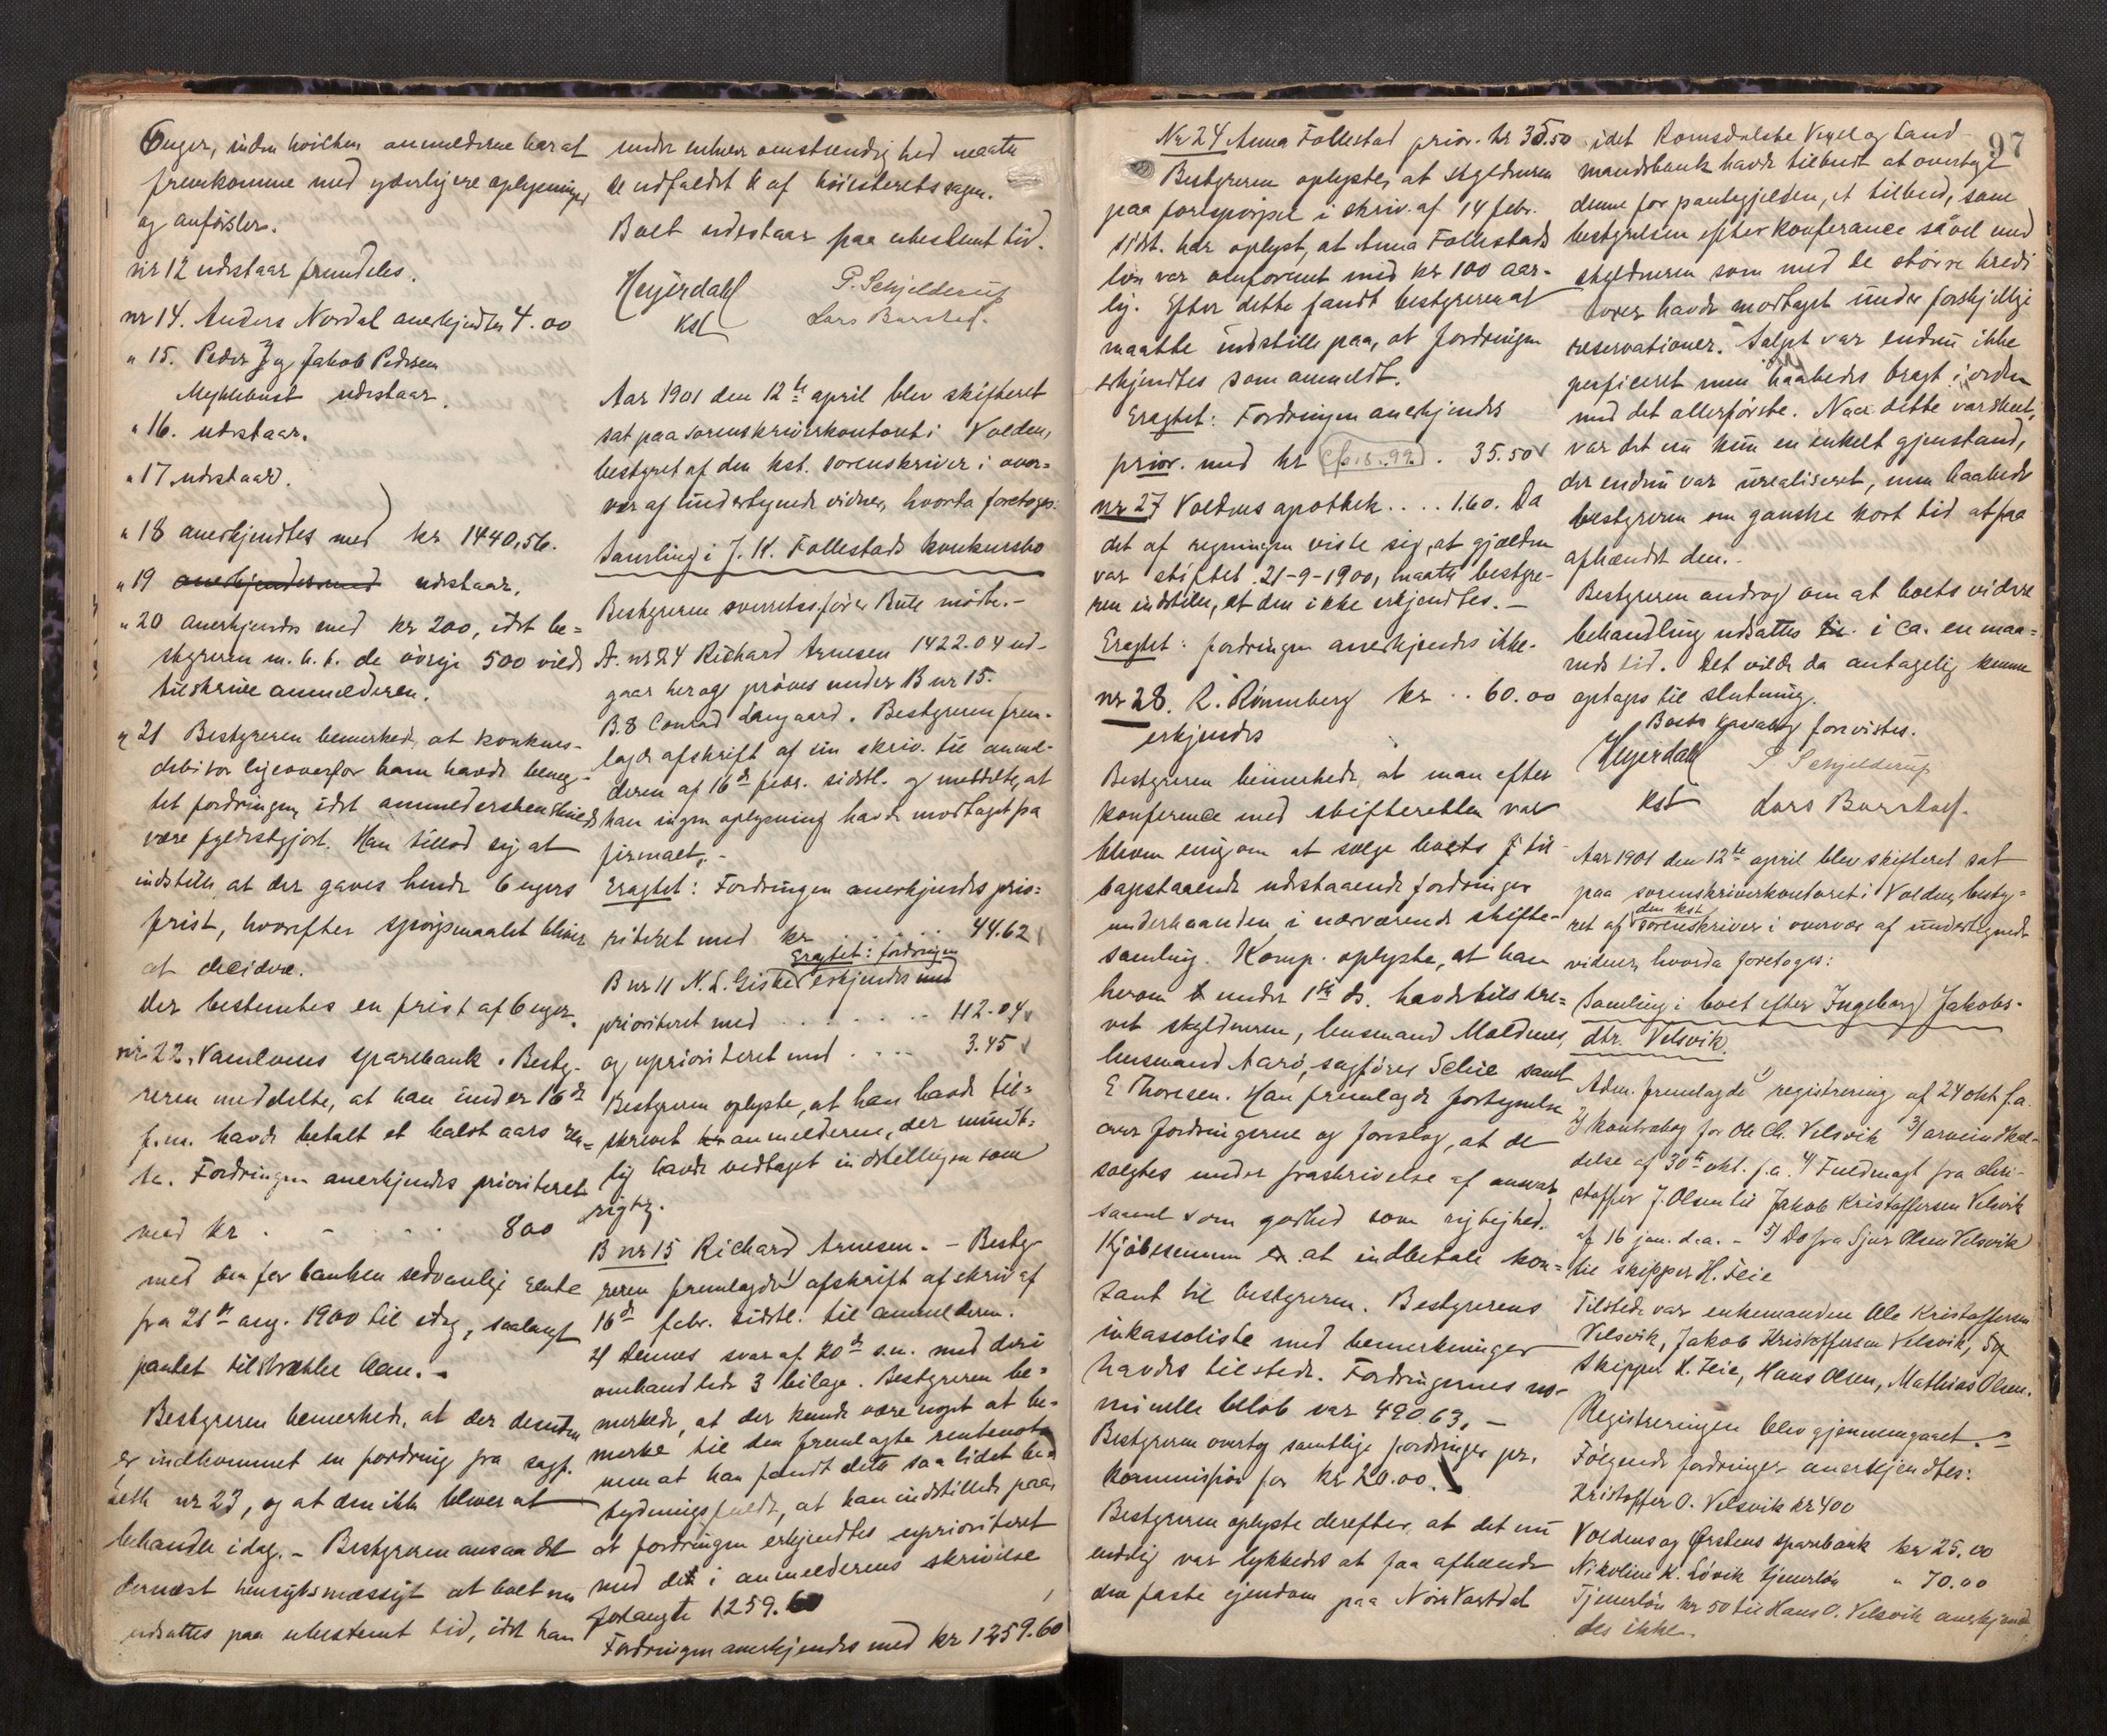 6 uger, inden hvilken anmelderne har at
fremkomme med yderligere oplysninger
og anførsler.
nr 12 udestaar fremdeles.
nr 14. Anders Nordal anerkjendtes 4.00
" 15. Peder J og Jakob Pedersen
Myklebust udestaar.
" 16. udestaar.
" 17 udestaar.
" 18 anerkjendtes med kr 1440,56.
" 19 anerkjendes med udestaar.
" 20 anerkjendes med kr 200, idet be=
styreren m. h. t. de øvrige 500 vilde
tilskrive anmelderen.
" 21 Bestyreren bemerkede, at konkurs-
debitor ligeoverfor ham havde beneg-
tet fordringen, idet
være fyldestgjort. Han tillod sig at
indstille, at der gaves hende 6 ugers
frist, hvorefter spørgsmaalet bliver
at decidere.
Der bestemtes en frist af 6 uger.
nr. 22. Vanelvens sparebank. Besty-
reren meddelte, at han under 16de
f.m. havde betalt et halvt aars ren=
te. Fordringen anerkjendes prioriteret
med kr . . . . 800
med den for banken sedvanlige rente
fra 21de aug. 1900 til idag, saalangt
pantet tilstrække kan. -
Bestyreren bemerkede, at der desuden
er indkommet en fordring fra sagf.
Seth nr 23, og at den ikke bliver at
behandle idag. - Bestyreren ansaa det
dernæst hensigtsmæssigt at boet nu
udsattes paa ubestemt tid, idet han
under enhver omstændighed maatte
se udfaldet af høiesteretssagen.
Boet udestaar paa ubestemt tid.
Heyerdahl P. Schjelderup
kst Lars Barstad.
Aar 1901 den 12te april blev skifteret
sat paa sorenskriverkontoret i Volden,
bestyret af den kst. sorenskriver i over=
vær af undertegnede vidner, hvorda foretoges:
Samling i J. K. Follestads konkursbo
Bestyreren overretssfører Bull mødte. -
A. nr 24 Richard Arnesen 1422.04 ud-
gaar her og prøves under B nr 15.
B. 8 Conrad Langaard. Bestyreren frem-
lagde afskrift af sin skriv. til anmel-
deren af 16de febr. sidstl. og meddelte, at
han ingen oplysning havde modtaget fra
firmaet. -
Eragtet: Fordringen anerkjendes prio=
riteret med kr . . . 44.62
Eragtet: fordringen
B nr 11 N. L. Giske erkjendes med
prioriteret med . . . . . . . 112.04
og uprioriteret med . . . . 3.45
Bestyreren oplyste, at han havde til=
skrevet anmelderen, der mundt=
lig havde vedtaget indstillingen som
rigtig.
B nr 15 Richard Arnesen. - Besty-
reren fremlagde 1) afskrift af skriv af
16de febr. sidstl. til anmelderen.
2) Dennes svar af 20de s.m. med deri
omhandlede 3 bilage. Bestyreren be=
merkede, at der kunde være noget at be=
merke til den fremlagte rentenota
men at han fandt dette saa lidet be=
tydningsfuldt, at han indstillede paa,
at fordringen erkjendtes uprioriteret
med det i anmelderens skrivelse
forlangte 1259.60
Fordringen anerkjendes med kr 1259.60
97
Nr 24 Anna Follestad prior. kr 35.50
Bestyreren oplyste, at skyldneren
paa forespørgsel i skriv. af 14 febr.
sidst. har oplyst, at Anna Follestads
løn var omforenet med kr 100 aar-
lig. Efter dette fandt bestyreren at
maatte indstille paa, at fordringen
erkjendtes som anmeldt.
Eragtet: Fordringen anerkjendes
prior. med kr . 35.50
nr 27 Voldens apothek . . . . 1.60. Da
det af regningen viste sig, at gjælden
var stiftet 21-9-1900, maatte bestyre-
ren indstille, at den ikke erkjendtes. -
Eragtet: fordringen anerkjendes ikke.
nr 28. R. Rønneberg kr . . 60.00
erkjendes
Bestyreren bemerkede, at man efter
konferance med skifteretten var
bleven enig om at sælge boets til-
bagestaaende udestaaende fordringer
underhaanden i nærværende skifte-
samling. Komp. oplyste, at han
herom under 1ste ds. havde tilskre=
vet skyldneren, lensmand Maldenes,
lensmand Aarø, sagfører Selie samt
E Thoresen. Han fremlagde fortegnelse
over fordringerne og foreslog, at de
solgtes under fraskrivelse af ansvar
saavel som godhed som rigtighed.
Kjøbesummen er at indbetale kon=
tant til bestyreren. Bestyrerens
inkassoliste med bemerkninger
havdes tilstede. Fordringernes no-
minelle beløb var 490.63. -
Bestyreren overtog samtlige fordringer pr.
kommission for kr 20.00.
Bestyreren oplyste derefter, at det nu
endelig var lykkedes at faa afhænde
den faste eiendom paa Nøre Vartdal
idet Romsdalske Vexel og Land-
mandsbank havde tilbudt at overtage
denne for pantegjelden, et tilbud, som
bestyrelsen efter konferance såvel med
skyldneren som med de større kredi-
torer havde modtaget under forskjellige
reservationer. Salget var endnu ikke
perficeret men haabedes bragt i orden
med det allerførste. Naar dette var skeet,
var det nu kun en enkelt gjenstand,
der endnu var urealiseret, men haabede
bestyreren om ganske kort tid at faa
afhændet den. -
Bestyreren androg om at boets videre
behandling udsattes i ca. en maa=
neds tid. Det vilde da antagelig kunne
optages til slutning.
Boets kassabog forevistes.
Heyerdahl P Schjelderup
kst Lars Barstad.
Aar 1901 den 12te april blev skifteret sat
paa sorenskriverkontoret i Volden, besty=
ret af den kst sorenskriver i overvær af undertegnede
vidner, hvorda foretoges:
Samling i boet efter Ingeborg Jakobs-
dtr. Velsvik.
Adm. fremlagde 1) registrering af 24 okt f.a.
2) kontrabog for Ole Ch. Velsvik 3) arveindkal-
delse af 30te okt. f.a. 4) Fuldmagt fra Chri-
stoffer J. Olsen til Jakob Kristoffersen Velsvik
af 16 jan. d.a. - 5) Do fra Sjur Olsen Velsvik
til skipper H. Feie
Tilstede var enkemanden Ole Kristoffersen
Velsvik, Jakob Kristoffersen Velsvik,
Skipper H. Feie, Hans Olsen, Mathias Olsen.
Registreringen blev gjennemgaaet. -
Følgende fordringer anerkjendtes:
Kristoffer O. Velsvik kr 400
Voldens og Ørstens sparebank kr 25.00
Nikoline K. Løvik tjenerløn " 70.00
Tjenerløn kr 50 til Hans O. Velsvik anerkjend-
des ikke.